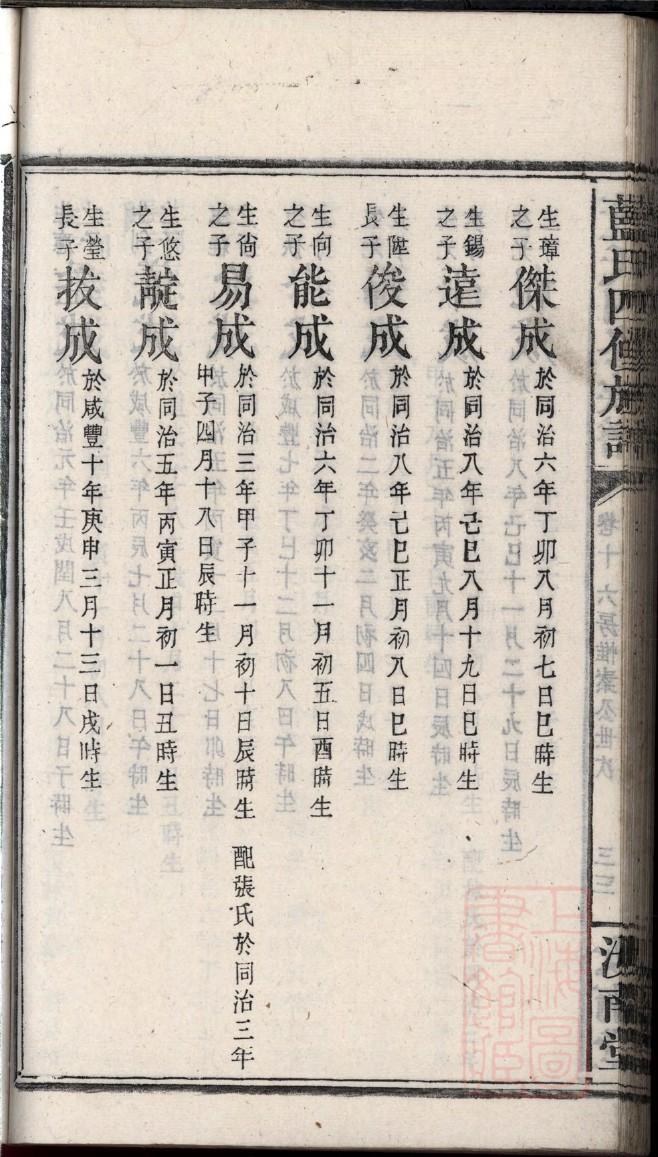 藍氏四修族譜
卷十 六房惟素公世次
三三
汝南堂
生璋之子 傑成 於同治六年丁卯八月初七日巳時生
生錫之子 達成 於同治八年己巳八月十九日巳時生
生陞長子 俊成 於同治八年己巳正月初八日巳時生
生向之子 能成 於同治六年丁卯十一月初五日酉時生
生尙之子 易成 於同治三年甲子十一月初十日辰時生 配張氏於同治三年
甲子四月十八日辰時生
生悠之子 靛成 於同治五年丙寅正月初一日丑時生
生瑩長子 拔成 於咸豐十年庚申三月十三日戌時生